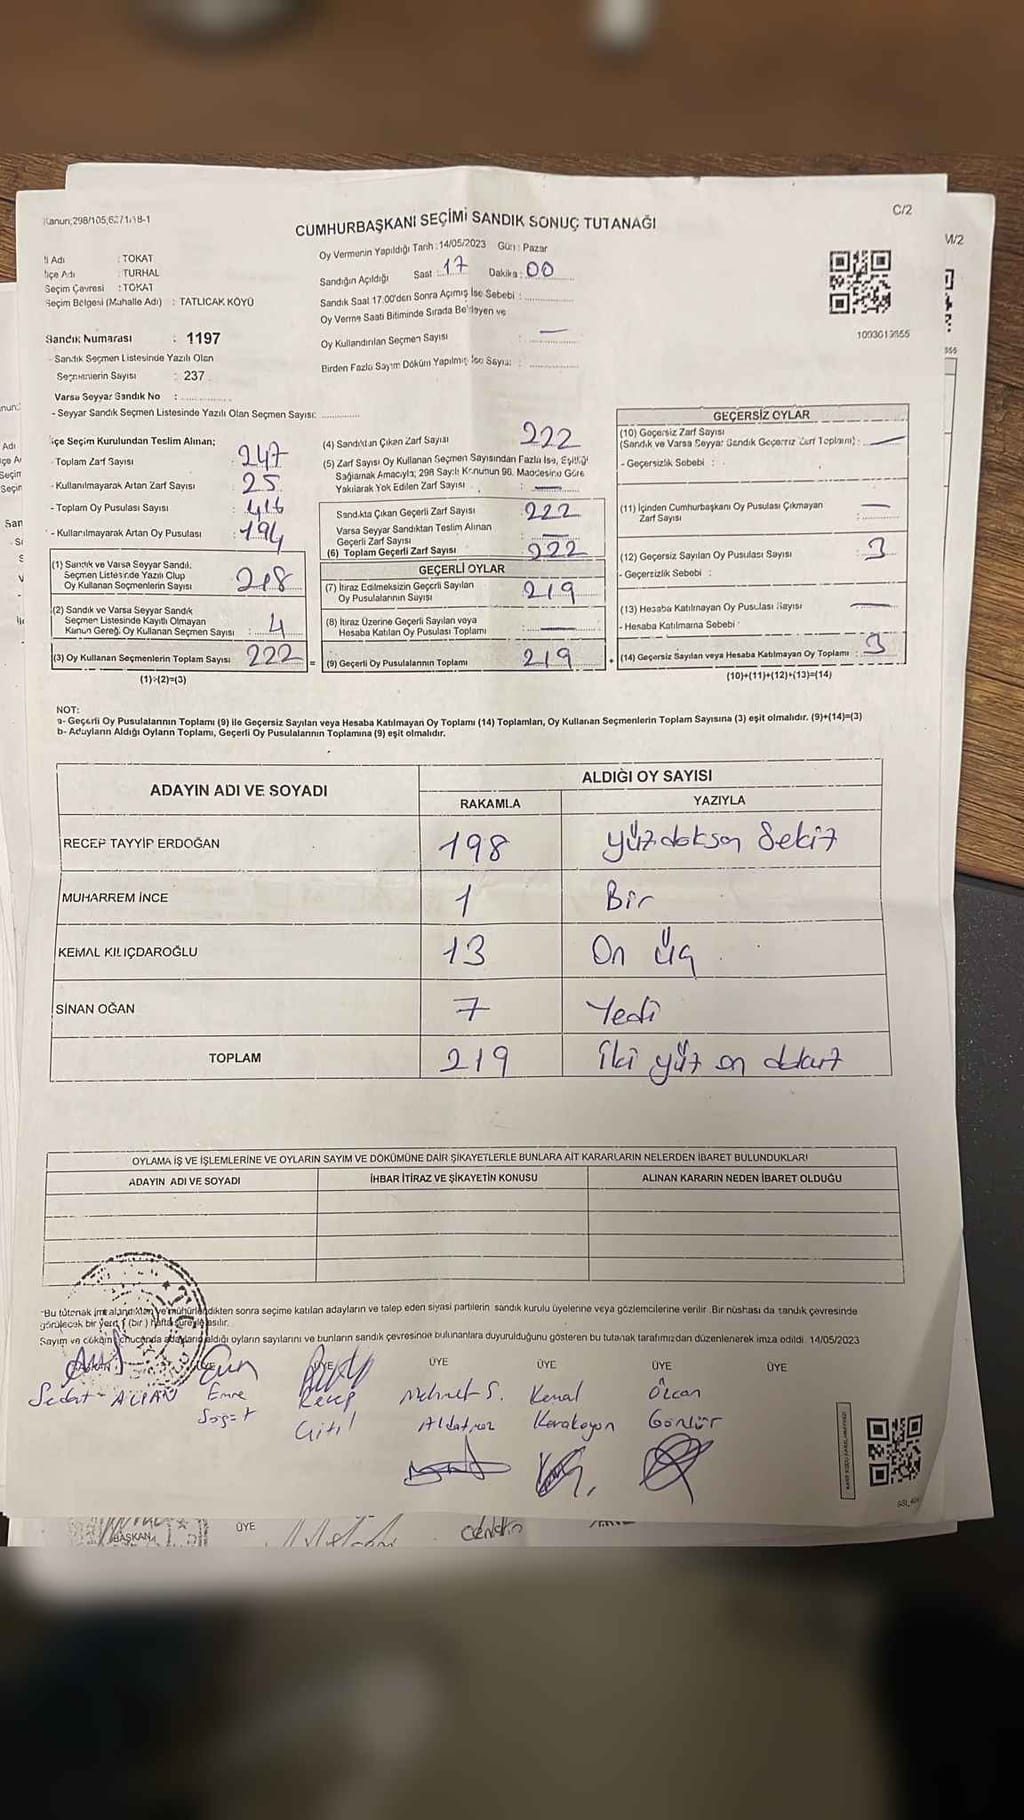 Kanun;298/105,62/1/18-1
C/2
CUMHURBAŞKANI SEÇİMİ SANDIK SONUÇ TUTANAĞI
M/2
İl Adı : TOKAT
İlçe Adı : TURHAL
Seçim Çevresi : TOKAT
Seçim Bölgesi (Mahalle Adı) : TATLICAK KÖYÜ
Oy Vermenin Yapıldığı Tarih : 14/05/2023 Gün : Pazar
Sandığın Açıldığı Saat : 17 Dakika : 00
Sandık Saat 17.00'den Sonra Açılmış İse Sebebi :
Oy Verme Saati Bitiminde Sırada Bekleyen ve
Oy Kullandırılan Seçmen Sayısı : —
Birden Fazla Sayım Döküm Yapılmış İse Sayısı :
Sandık Numarası : 1197
- Sandık Seçmen Listesinde Yazılı Olan
Seçmenlerin Sayısı : 237
Varsa Seyyar Sandık No :
- Seyyar Sandık Seçmen Listesinde Yazılı Olan Seçmen Sayısı:
İlçe Seçim Kurulundan Teslim Alınan;
- Toplam Zarf Sayısı : 247
- Kullanılmayarak Artan Zarf Sayısı : 25
- Toplam Oy Pusulası Sayısı : 416
- Kullanılmayarak Artan Oy Pusulası : 194
(1) Sandık ve Varsa Seyyar Sandık
Seçmen Listesinde Yazılı Olup
Oy Kullanan Seçmenlerin Sayısı 218
(2) Sandık ve Varsa Seyyar Sandık
Seçmen Listesinde Kayıtlı Olmayan
Kanun Gereği Oy Kullanan Seçmen Sayısı : 4
(3) Oy Kullanan Seçmenlerin Toplam Sayısı 222
(1)+(2)=(3)
(4) Sandıktan Çıkan Zarf Sayısı 222
(5) Zarf Sayısı Oy Kullanan Seçmen Sayısından Fazla İse, Eşitliği
Sağlamak Amacıyla; 298 Sayılı Kanunun 98. Maddesine Göre
Yakılarak Yok Edilen Zarf Sayısı : —
Sandıkta Çıkan Geçerli Zarf Sayısı : 222
Varsa Seyyar Sandıktan Teslim Alınan
Geçerli Zarf Sayısı : —
(6) Toplam Geçerli Zarf Sayısı 222
GEÇERLİ OYLAR
(7) İtiraz Edilmeksizin Geçerli Sayılan
Oy Pusulalarının Sayısı 219
(8) İtiraz Üzerine Geçerli Sayılan veya
Hesaba Katılan Oy Pusulası Toplamı : —
= (9) Geçerli Oy Pusulalarının Toplamı 219 +
GEÇERSİZ OYLAR
(10) Geçersiz Zarf Sayısı
(Sandık ve Varsa Seyyar Sandık Geçersiz Zarf Toplamı) : —
- Geçersizlik Sebebi :
(11) İçinden Cumhurbaşkanı Oy Pusulası Çıkmayan
Zarf Sayısı : —
(12) Geçersiz Sayılan Oy Pusulası Sayısı : 3
- Geçersizlik Sebebi :
(13) Hesaba Katılmayan Oy Pusulası Sayısı —
- Hesaba Katılmama Sebebi :
(14) Geçersiz Sayılan veya Hesaba Katılmayan Oy Toplamı : 3
(10)+(11)+(12)+(13)=(14)
NOT:
a- Geçerli Oy Pusulalarının Toplamı (9) ile Geçersiz Sayılan veya Hesaba Katılmayan Oy Toplamı (14) Toplamları, Oy Kullanan Seçmenlerin Toplam Sayısına (3) eşit olmalıdır. (9)+(14)=(3)
b- Adayların Aldığı Oyların Toplamı, Geçerli Oy Pusulalarının Toplamına (9) eşit olmalıdır.
ADAYIN ADI VE SOYADI
ALDIĞI OY SAYISI
RAKAMLA YAZIYLA
RECEP TAYYİP ERDOĞAN 198 Yüz doksan Sekiz
MUHARREM İNCE 1 Bir
KEMAL KILIÇDAROĞLU 13 On Üç
SİNAN OĞAN 7 Yedi
TOPLAM 219 iki yüz on dokuz
OYLAMA İŞ VE İŞLEMLERİNE VE OYLARIN SAYIM VE DÖKÜMÜNE DAİR ŞİKAYETLERLE BUNLARA AİT KARARLARIN NELERDEN İBARET BULUNDUKLARI
ADAYIN ADI VE SOYADI İHBAR İTİRAZ VE ŞİKAYETİN KONUSU ALINAN KARARIN NEDEN İBARET OLDUĞU
"Bu tutanak imzalandıktan ve mühürlendikten sonra seçime katılan adayların ve talep eden siyasi partilerin sandık kurulu üyelerine veya gözlemcilerine verilir. Bir nüshası da sandık çevresinde
görülecek bir yere 1 (bir) hafta süreyle asılır.
Sayım ve döküm sonucunda adayların aldığı oyların sayılarını ve bunların sandık çevresinde bulunanlara duyurulduğunu gösteren bu tutanak tarafımızdan düzenlenerek imza edildi. 14/05/2023
ÜYE ÜYE ÜYE ÜYE ÜYE
Sedat Emre Recep Mehmet S. Kemal Özcan
BAŞKAN ÜYE